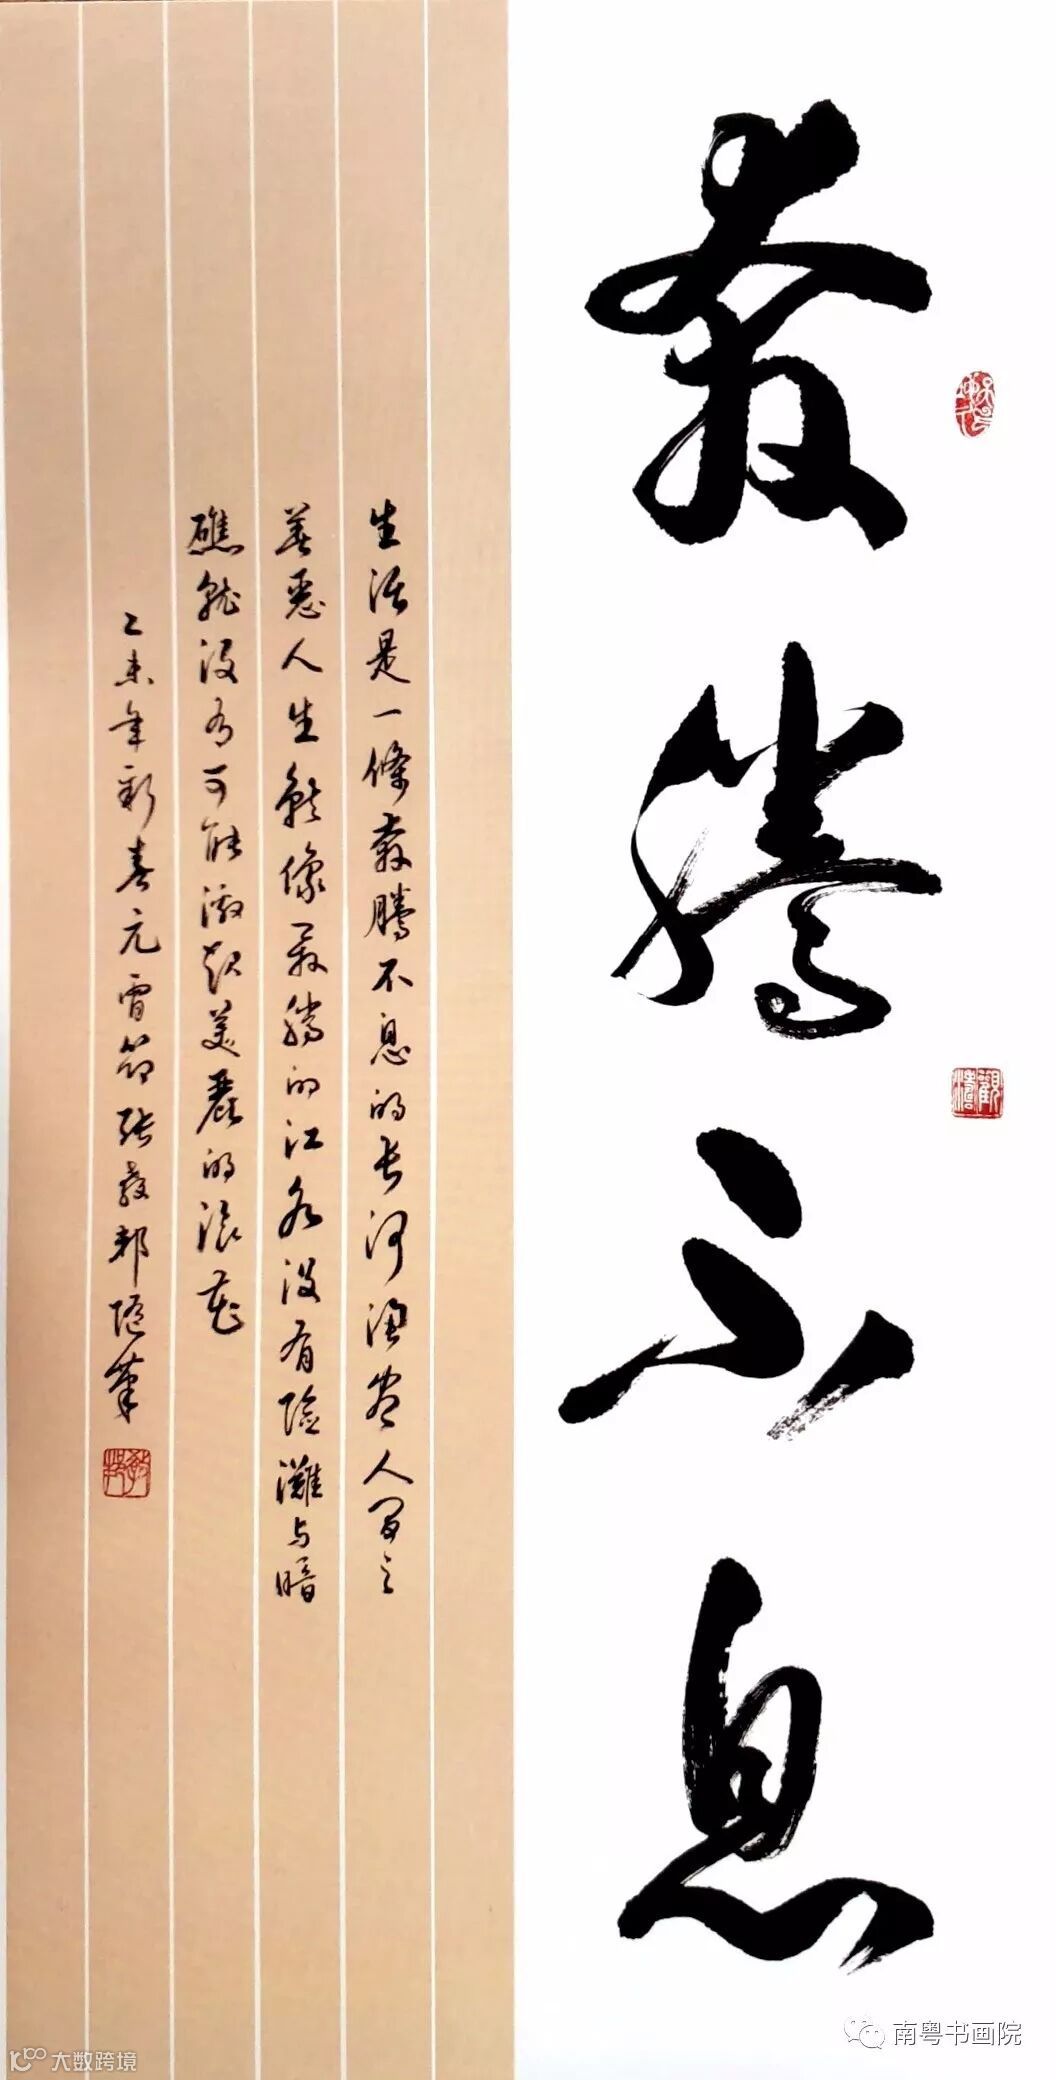 奔腾不息
生活是一條奔騰不息的长河演尽人间之
善恶人生就像奔腾的江水没有险灘与暗
礁就没有可能激起美麗的浪花
乙未年新春元宵節张敖邦随筆
觀濤
南粤书画院
大数跨境